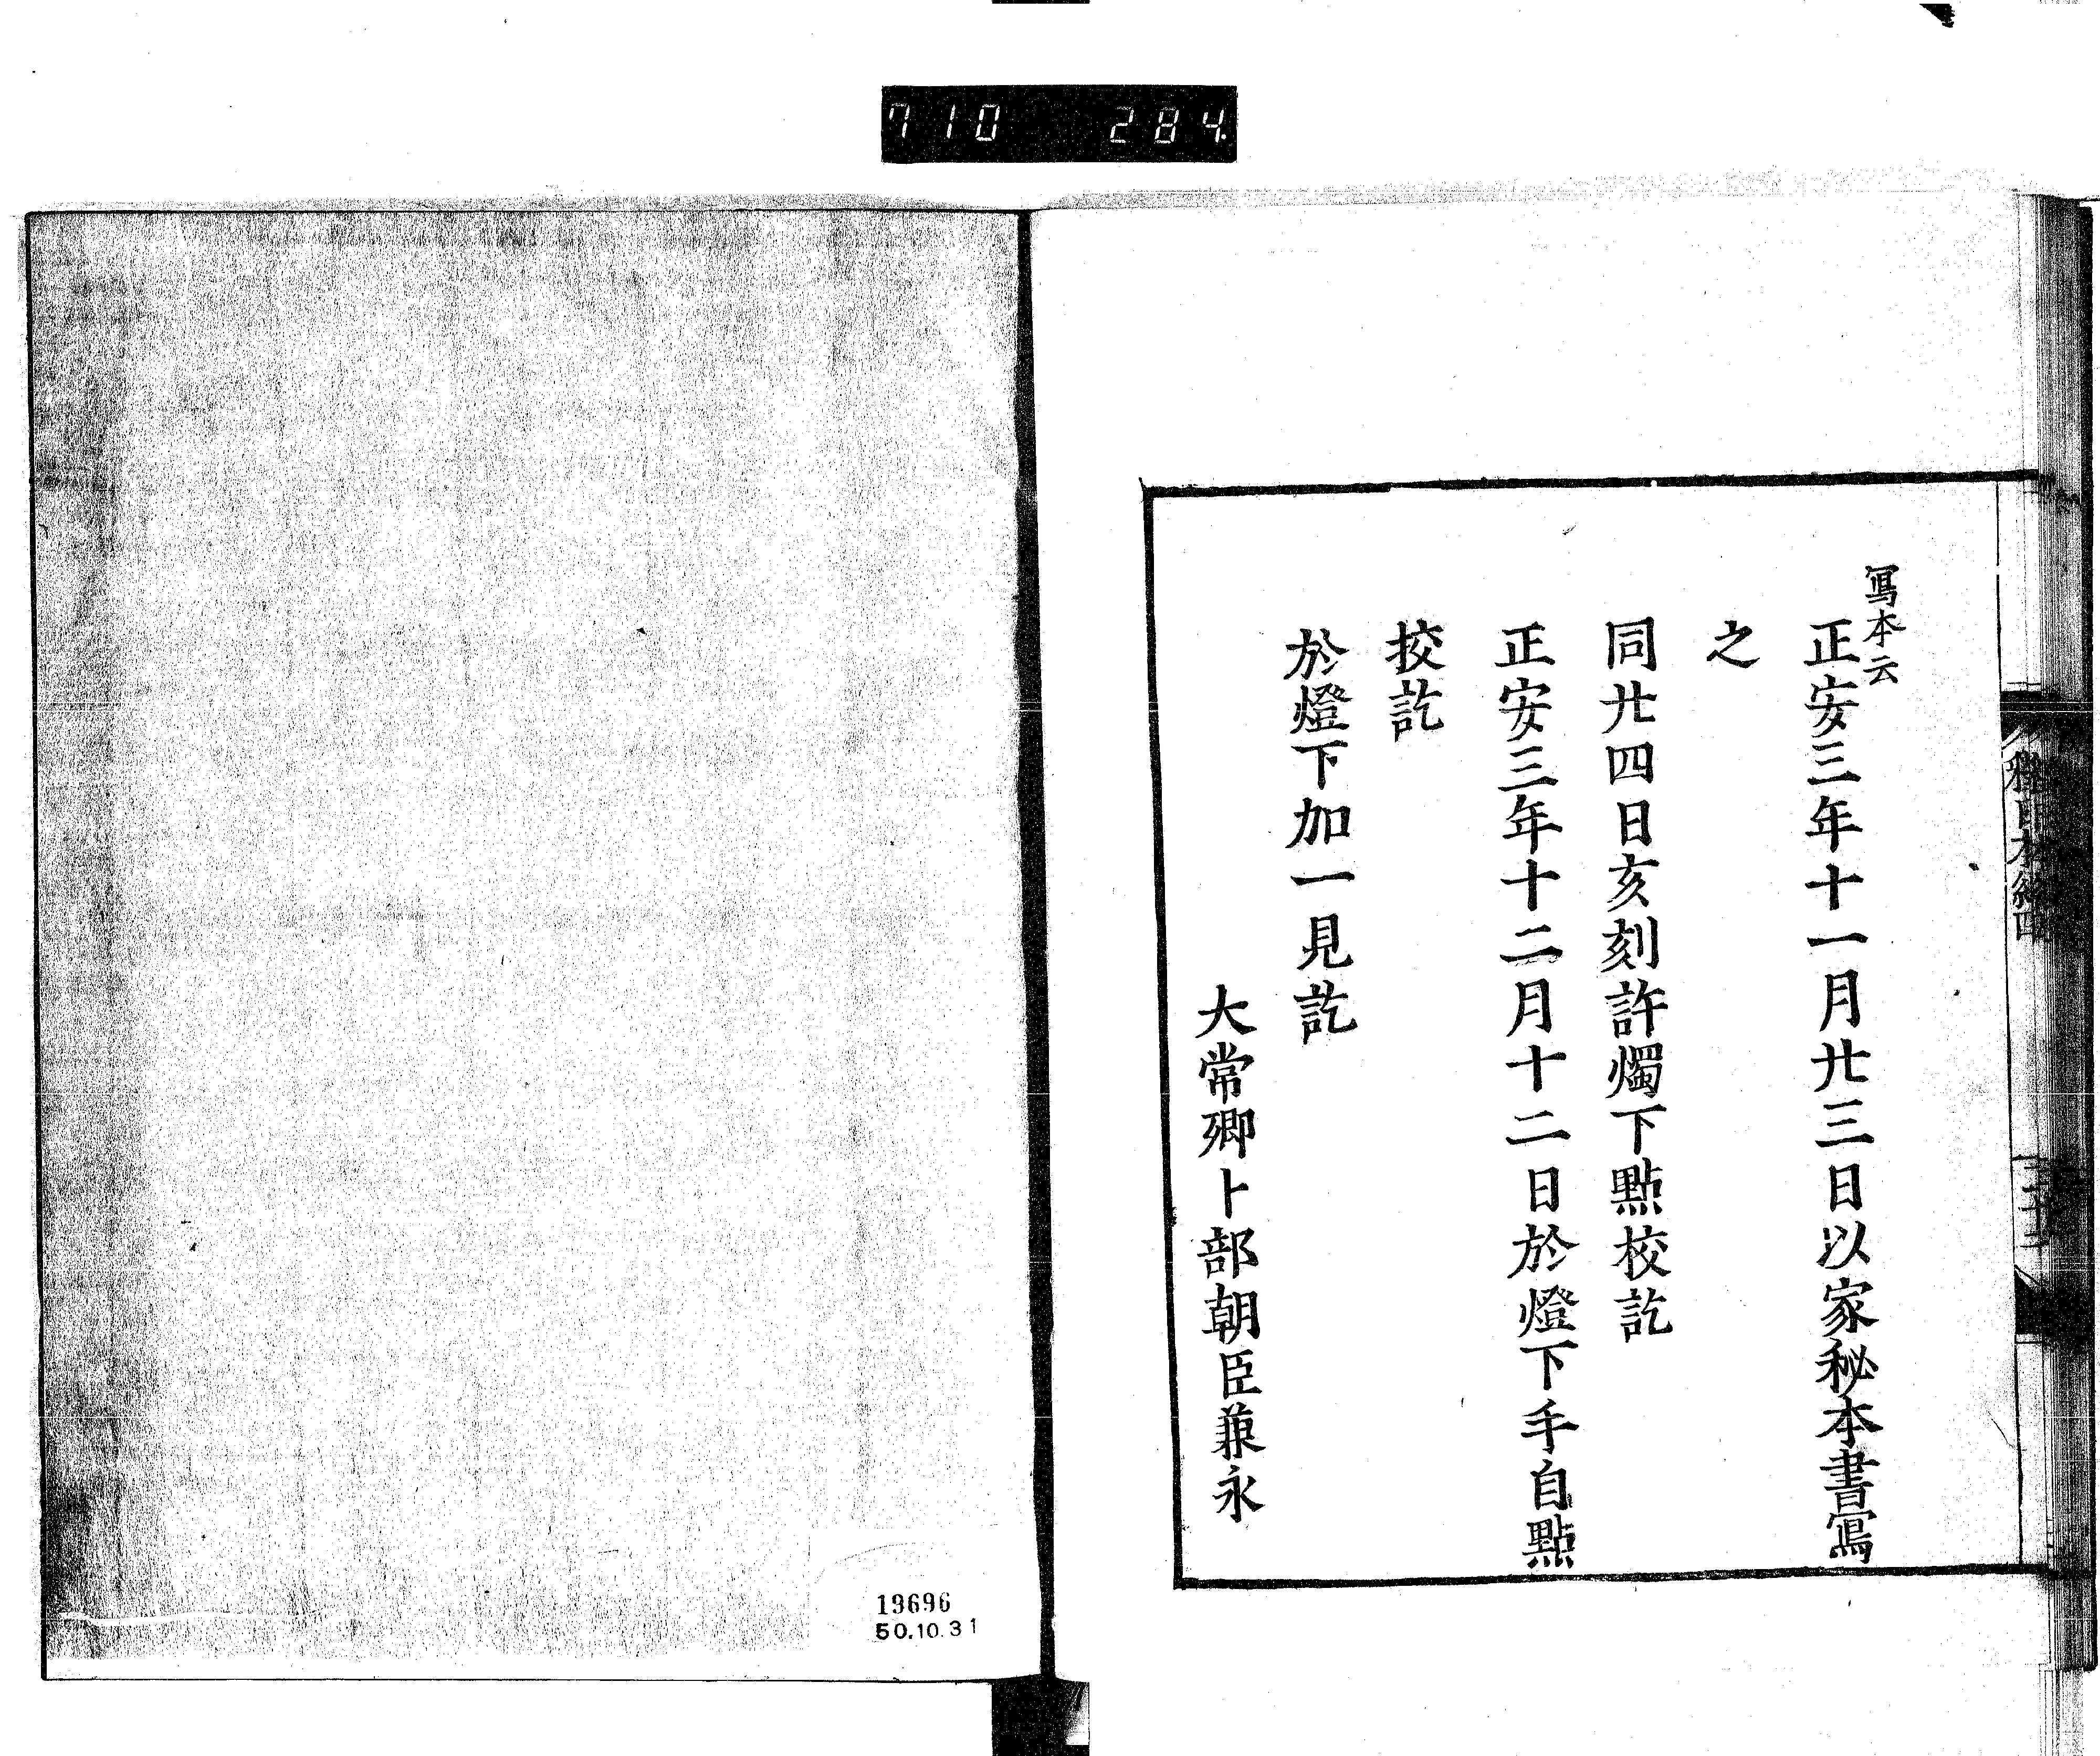 710 284
寫本云
正安三年十一月廿三日以家秘本書寫
之
同廿四日亥刻許燭下點校訖
正安三年十二月十二日於燈下手自點
挍訖
於燈下加一見訖
大常卿卜部朝臣兼永
19696
50.10.31